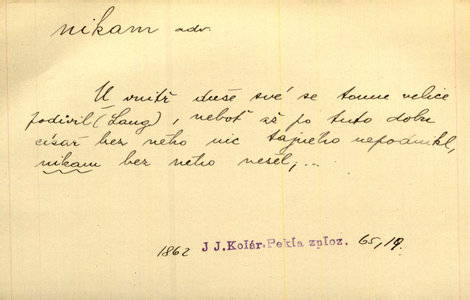 nikam adv.
U vnitř duše své se tomu velice
podivil (Lang), neboť až po tuto dobu
císař bez něho nic tajného nepodnikl,
nikam bez něho nešel; ...
1862 J J. Kolár. Pekla zploz. 65, 19.